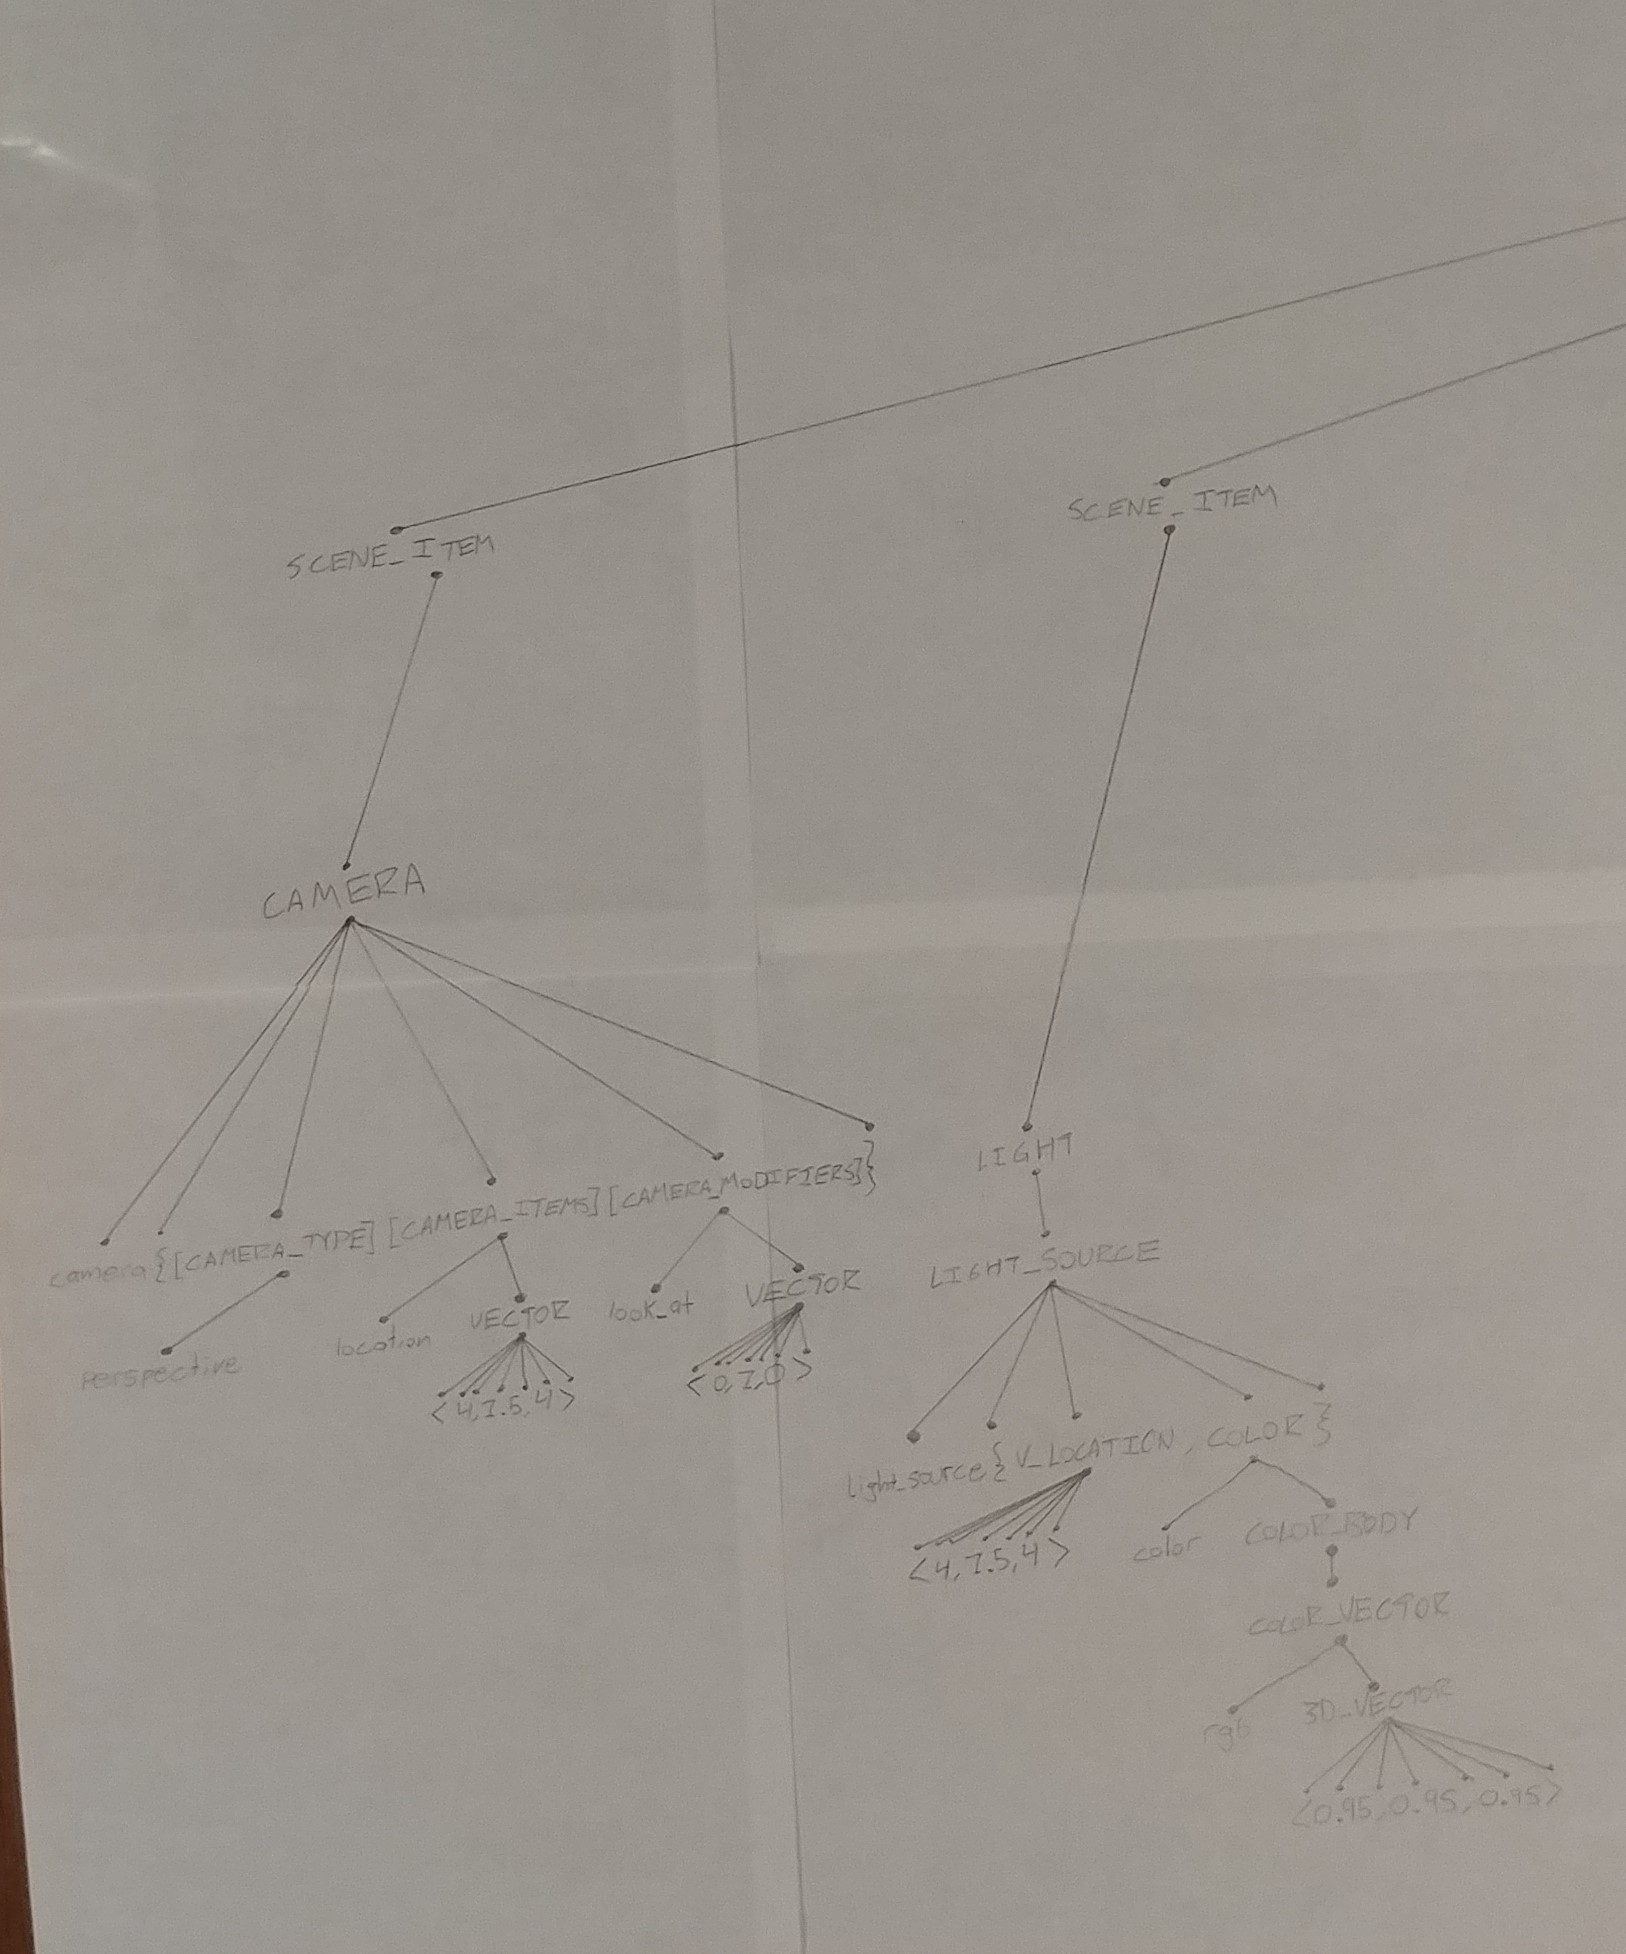 SCENE_ITEM
SCENE_ITEM
CAMERA
LIGHT
camera {[CAMERA_TYPE] [CAMERA_ITEMS] [CAMERA_MODIFIERS]}
LIGHT_SOURCE
perspective
location
VECTOR
look_at
VECTOR
<4,1.5,4>
<0,1,0>
light_source { V_LOCATION , COLOR }
<4,1.5,4>
color
COLOR_BODY
COLOR_VECTOR
rgb
3D_VECTOR
<0.95,0.95,0.95>